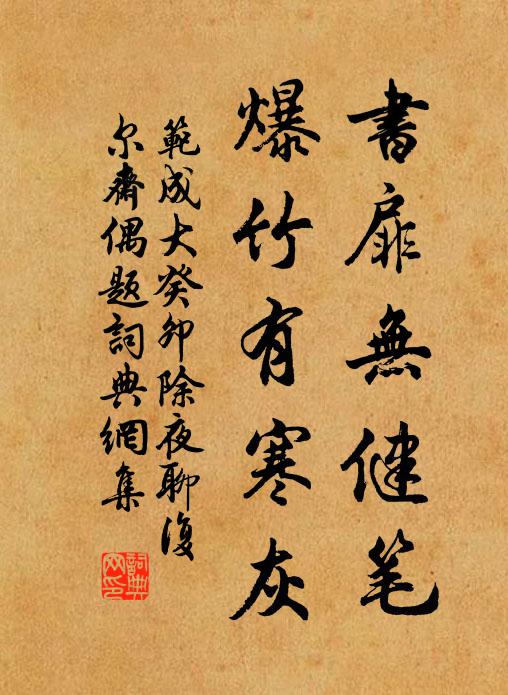 書扉無健笔
爆竹有寒灰
範成大癸卯除夜聊復
尔齋偶题詞典網集
詞典网印